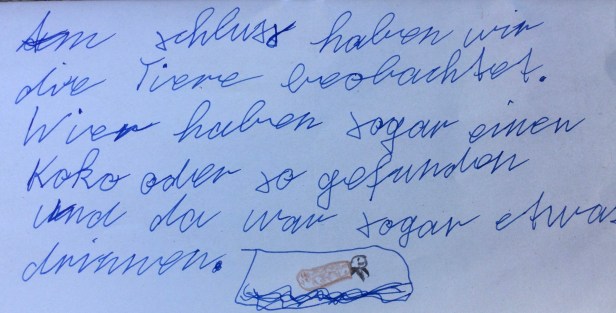 Am schluss haben wir
die Tiere beobachtet.
Wier haben sogar einen
Koko oder so gefunden
und da war sogar etwas
drinnen.